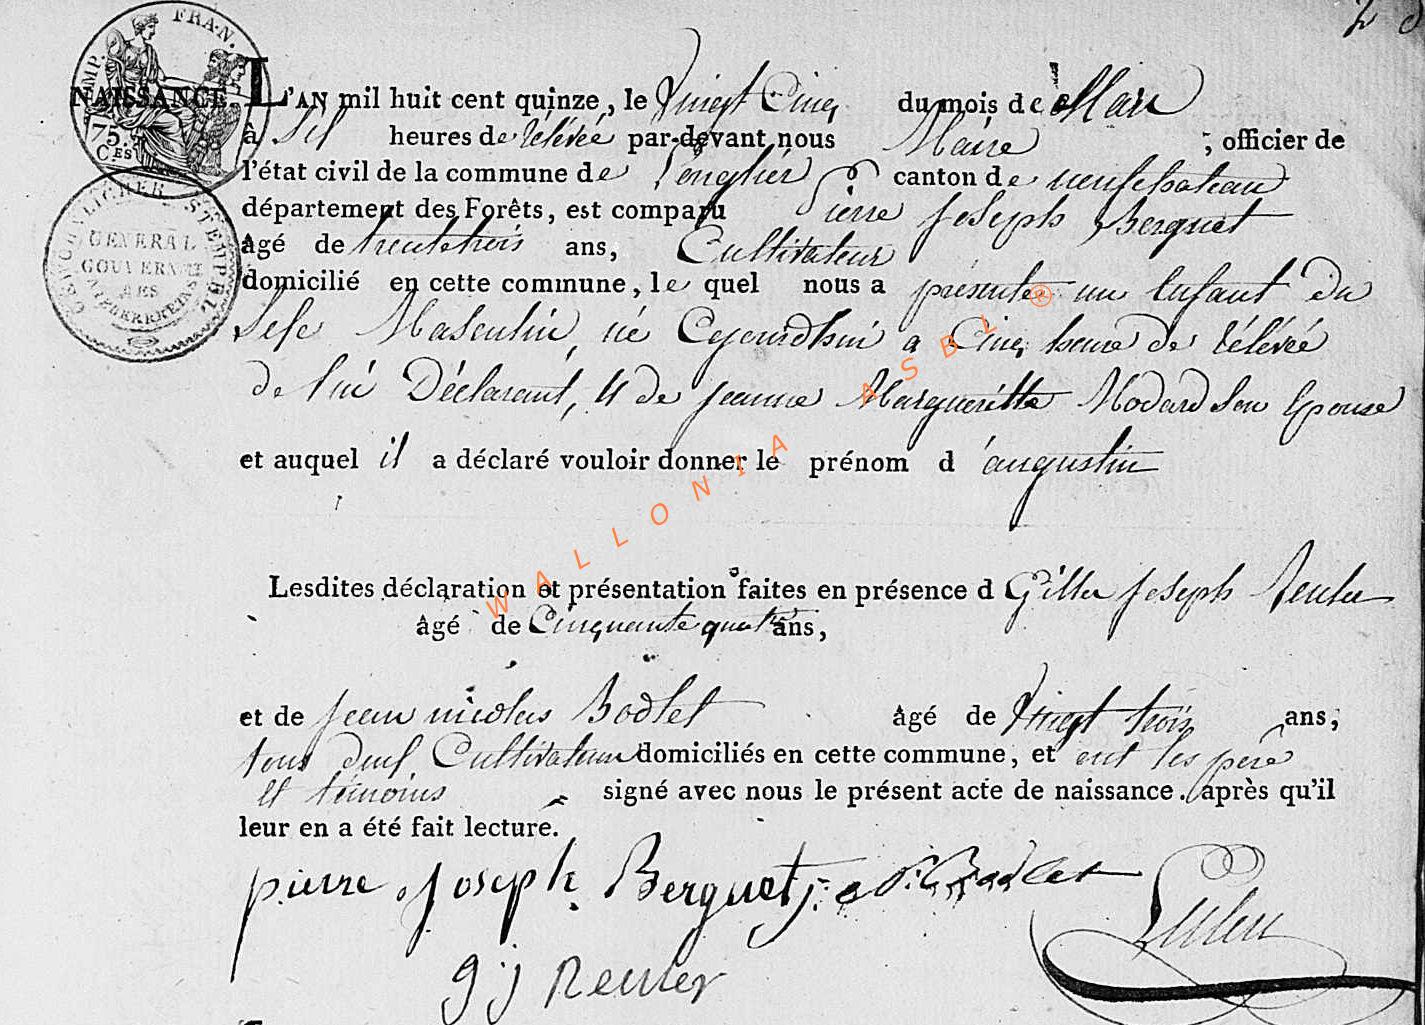 2
FRAN.
TIMP.
75.
C.ES
NAISSANCE. L'AN mil huit cent quinze, le Vingt Cinq du mois de Mars
à Six heures de rélévée par-devant nous Maire ; officier de
l'état civil de la commune de Longlier canton de neufchateau
département des Forêts, est comparu Pierre Joseph Berquet
âgé de trente trois ans, Cultivateur
domicilié en cette commune, le quel nous a présenté un Enfant du
Sexe Masculin, né Cejourdhui a Cinq heure de rélévée
de lui Déclarant, et de jeanne Margueritte Modard Son Epouse
et auquel il a déclaré vouloir donner le prénom d'augustin
Lesdites déclaration et présentation faites en présence d Gille joseph Reuler
âgé de Cinquante quatre ans,
et de jean nicolas Bodlet âgé de Vingt trois ans,
tous deux Cultivateurs domiciliés en cette commune, et ont les pere
et témoins signé avec nous le présent acte de naissance. après qu'il
leur en a été fait lecture.
pierre joseph Berquet j: n: Bodlet
g j Reuler
STEMPEL
GENERAL
GOUVERNEMENT
DES
WALLONIA ASBL ®